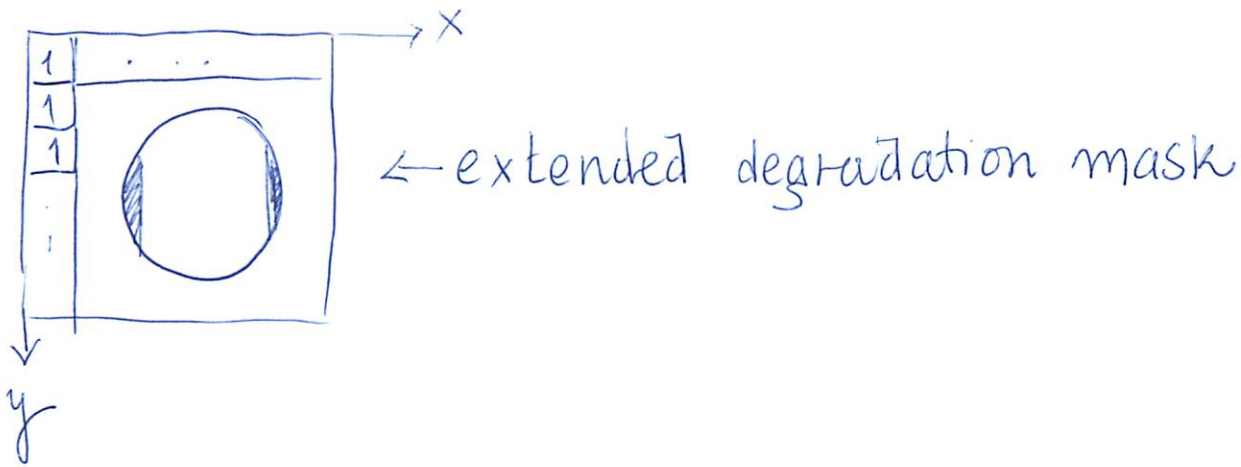 x
1 . . .
1
1 ← extended degradation mask
.
:
y